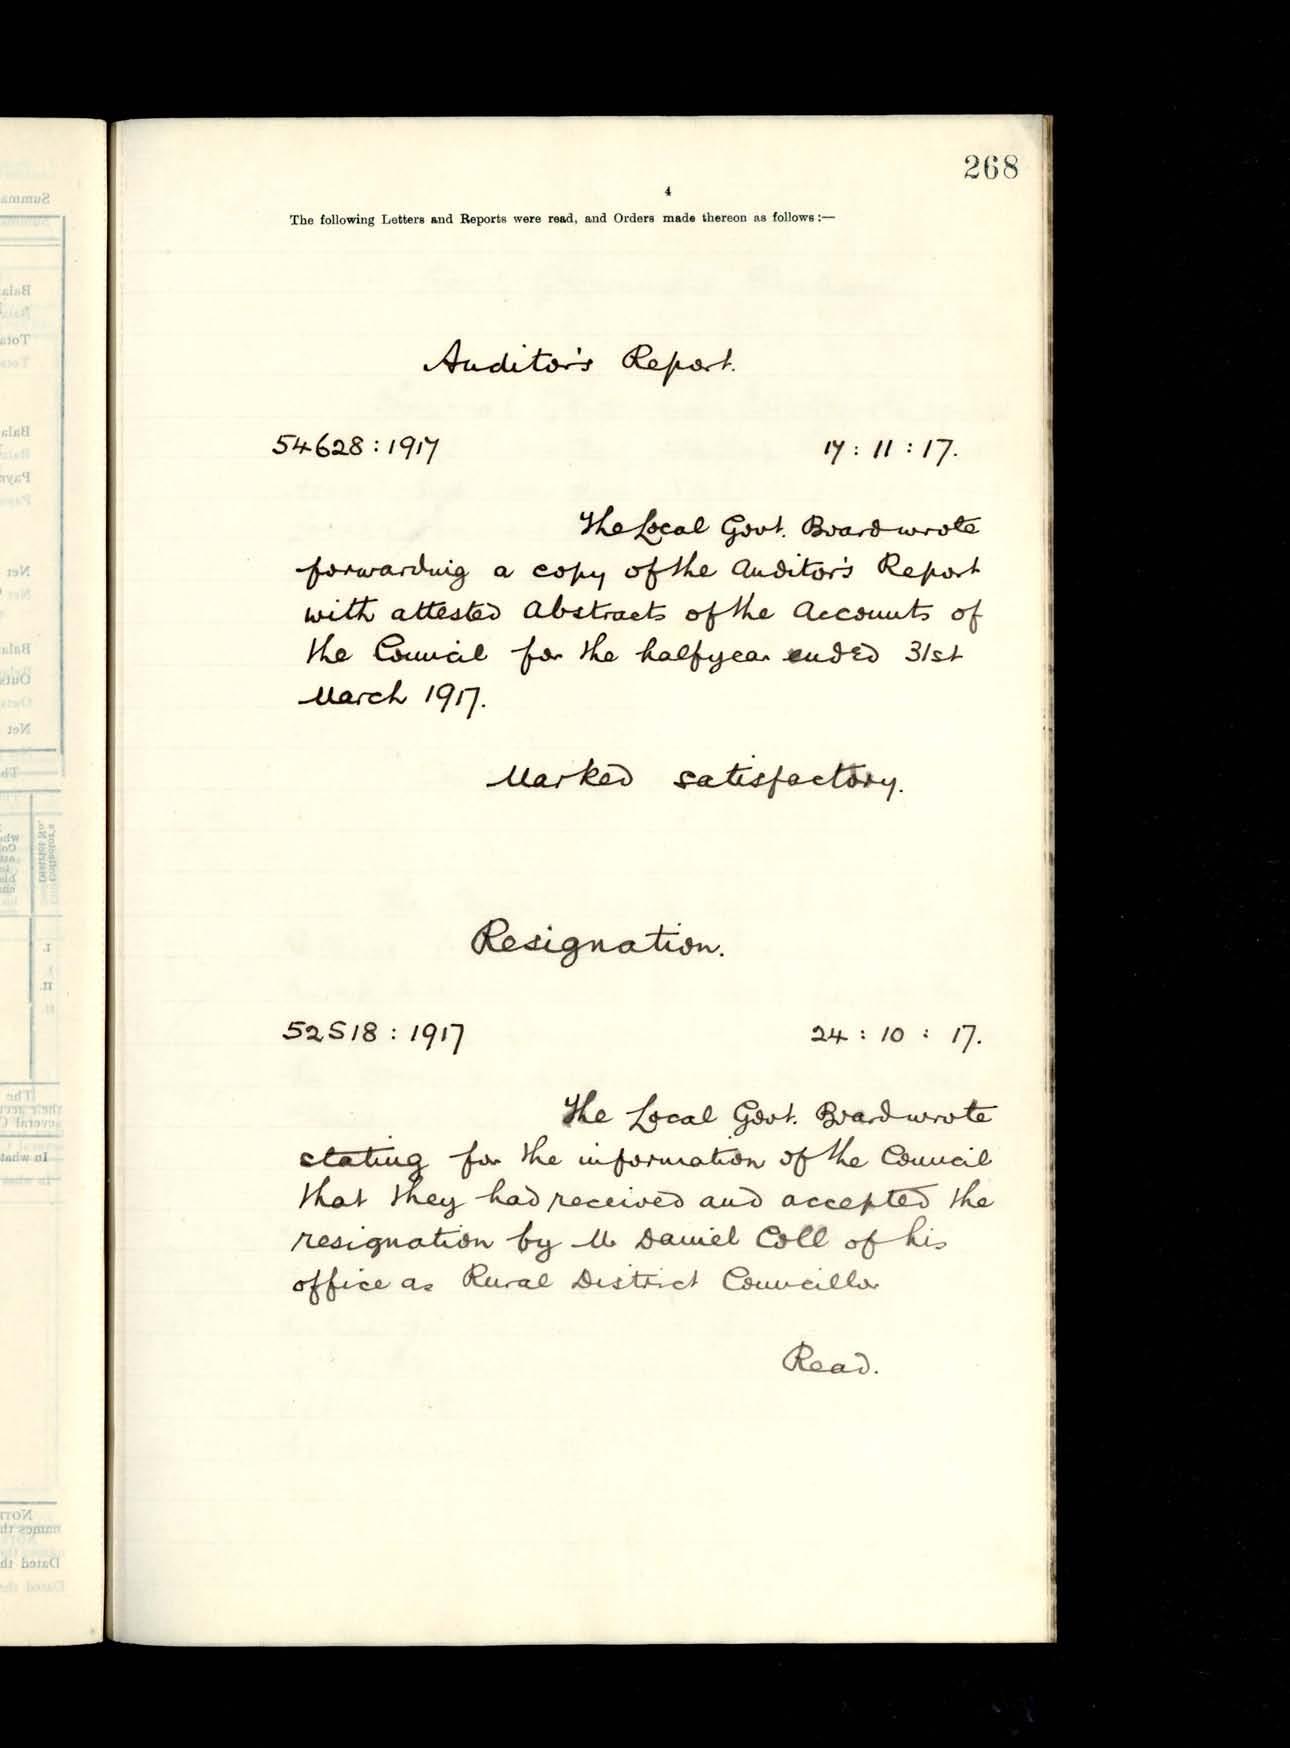 268
4
The following Letters and Reports were read, and Orders made thereon as follows:—
Auditor's Report.
54628:1917 17:11:17.
The Local Govt. Board wrote
forwarding a copy of the Auditor's Report
with attested Abstracts of the Accounts of
the Council for the halfyear ended 31st
March 1917.
Marked satisfactory.
Resignation.
52518:1917 24:10:17.
The Local Govt. Board wrote
stating for the information of the Council
that they had received and accepted the
resignation by Mr Daniel Coll of his
office as Rural District Councillor
Read.